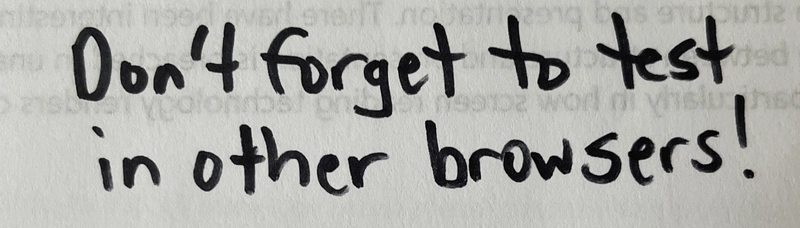 Don't forget to test
in other browsers!